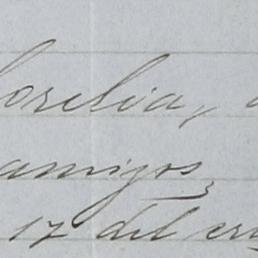 orelia,
amigos,
17 del